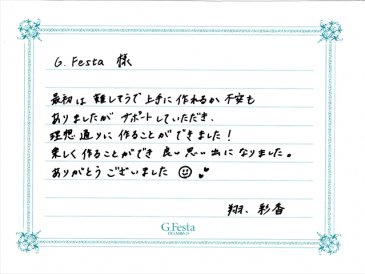 G. Festa 様
最初は 難しそうで上手に作れるか 不安も
ありましたが サポートしていただき、
理想通りに作ることができました！
楽しく作ることができ 良い思い出になりました。
ありがとうございました
翔、彩香
G.Festa